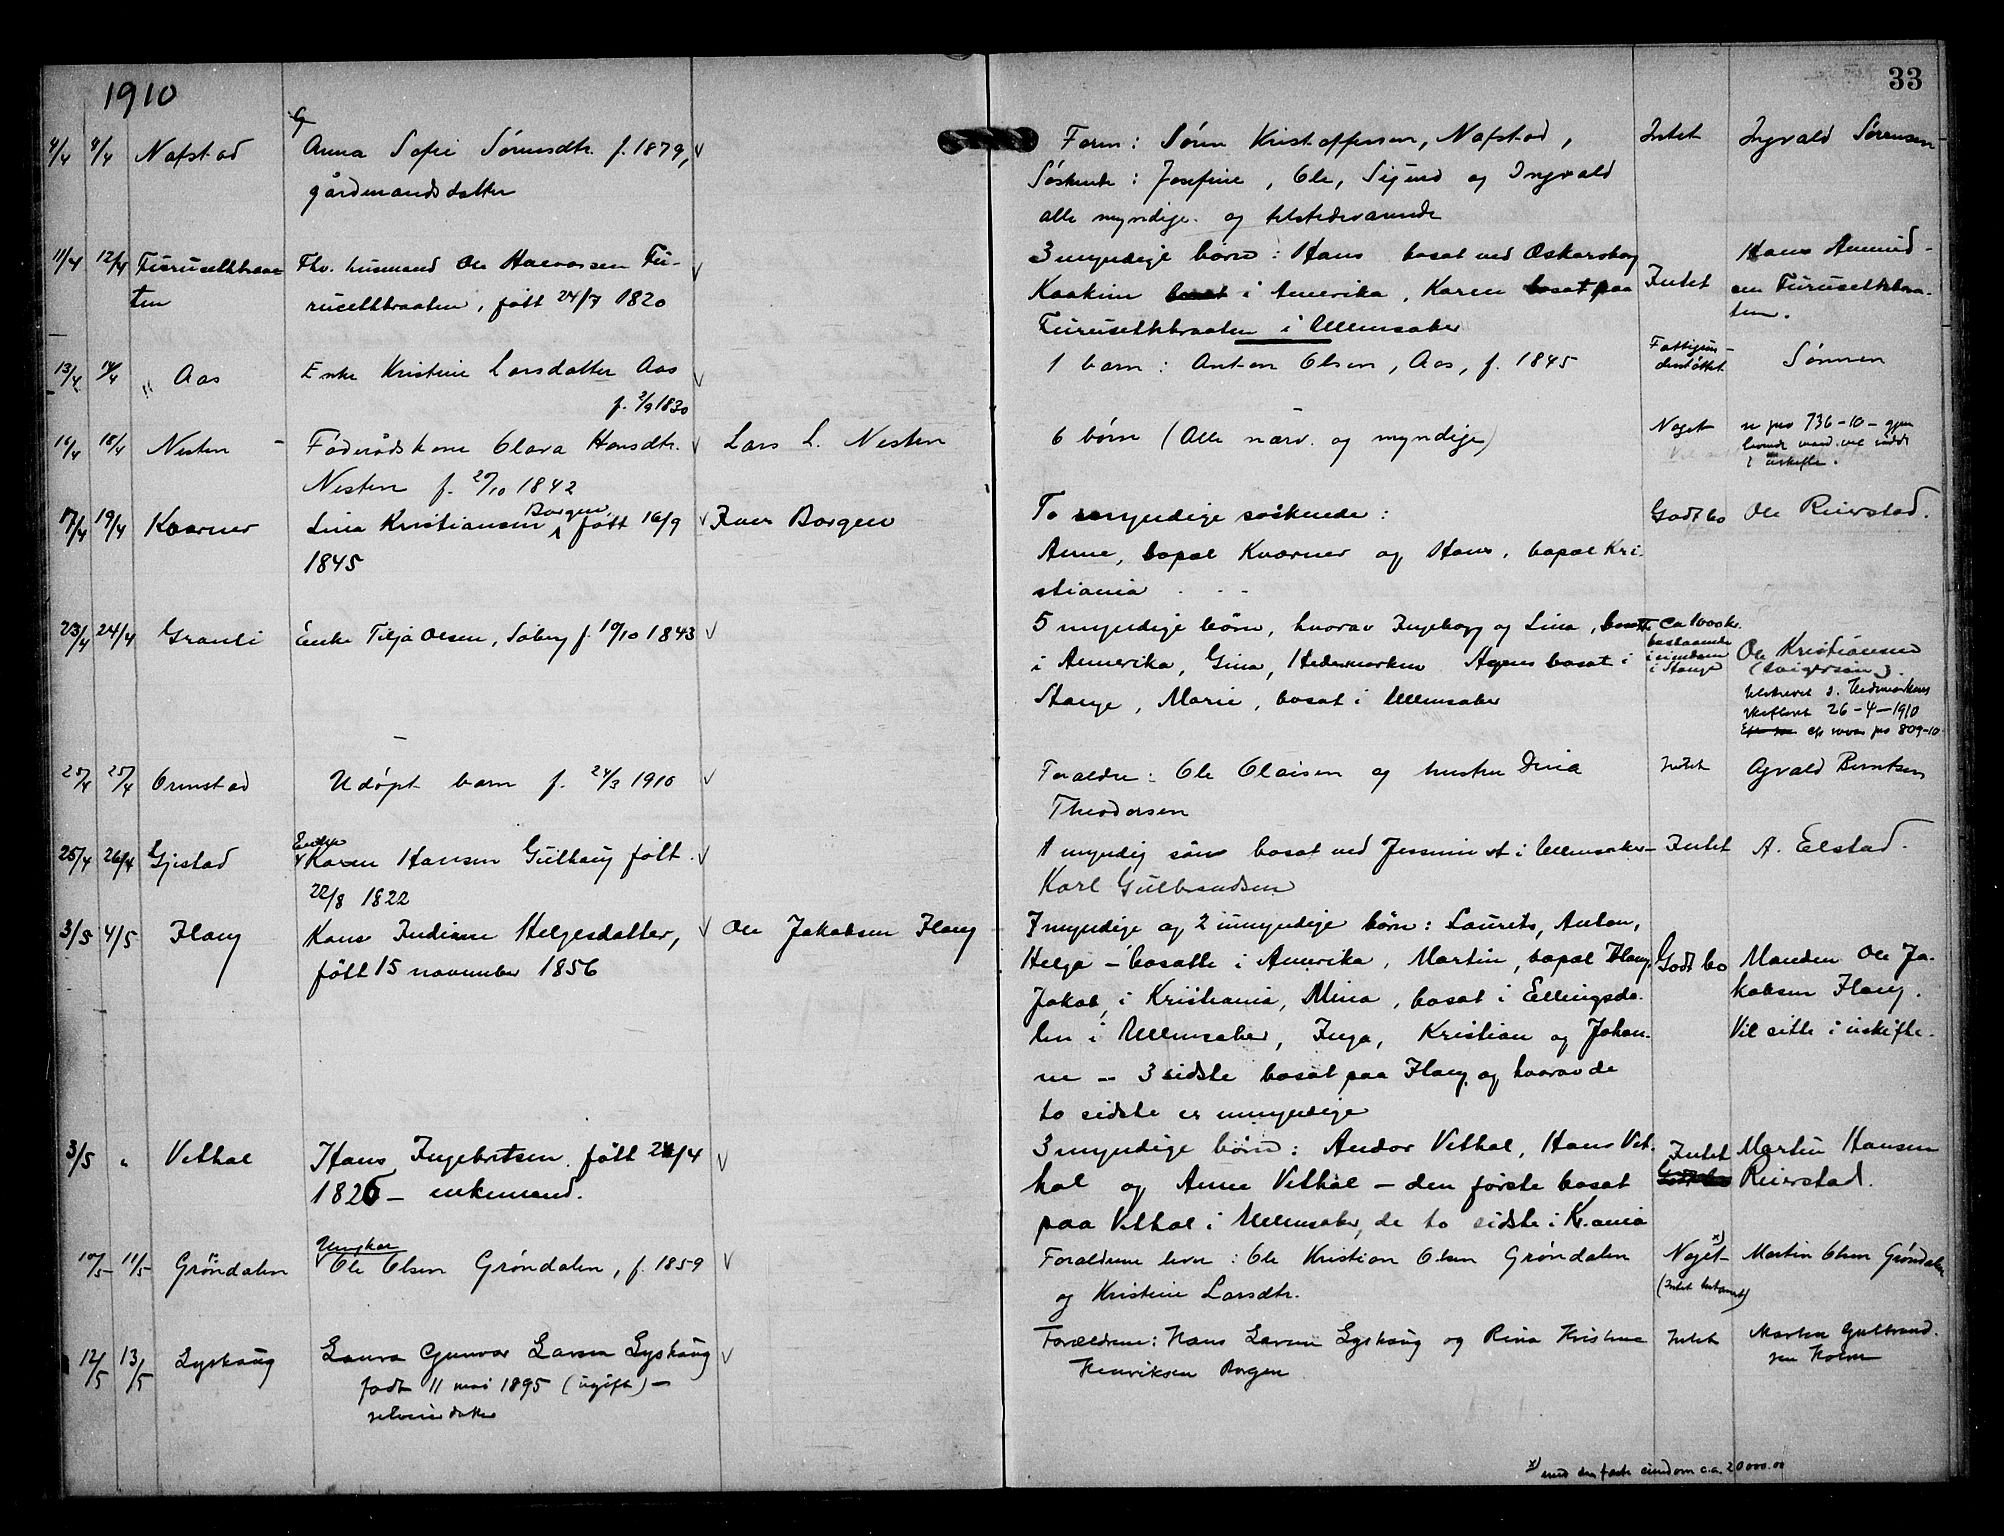 1910
33
9/4 9/4 Nafstad
G
Anna Sofie Sørensdtr. f. 1879,
gårdmandsdatter
Faren: Søren Kristoffersen, Nafstad,
Søskende: Josefine, Ole, Sigurd og Ingvald
alle myndige og tilstedeværende
Intet
Ingvald Sørensen
11/4 12/4 Furusethbraa-
ten
Fhv. husmand Ole Halvorsen Fu-
rusethbraaten, født 24/7 1820
3 myndige børn: Hans bosat ved Oskarsborg
Kaakim bosat i Amerika, Karen bosat paa
Furusethbraaten i Ullensaker
Intet
Hans Amund-
sen Furusethbraa-
ten.
13/4 14/4 " Aas
Enke Kristine Larsdatter Aas
f. 2/9 1830
1 barn: Anton Olsen, Aas, f. 1845
Fattigun-
derstøttet
Sønnen
16/4 18/4 Nesten -
Føderådskone Olava Hansdtr.
Nesten f. 20/10 1842
Lars L. Nesten
6 børn (Alle nærv. og myndige)
Noget
736-10- gjen
levende mand
i uskifte.
17/4 19/4 Kværner
Lina Kristiansen Borgen født 16/9
1845
Iver Borgen
To myndige søskende:
Anne, bopæl Kværner og Hans, bopæl Kri-
stiania
Godt bo
Ole Reierstad.
23/4 24/4 Granli
Enke Tilja Olsen, Søberg f. 10/10 1843
5 myndige børn, hvorav Ingeborg og Lina, bosatte
i Amerika, Gina, Hedemarken Agnes bosat i
Stange, Marie, bosat i Ullensaker
Ca 1000 kr.
bestaaende
i eiendom
i Stange
Ole Kristiansen
(svigersøn).
tilskrevet s. Hedmarkens
skifteret 26-4-1910
809-10
25/4 25/4 Ormstad
Udøpt barn f. 24/3 1910
Forældre: Ole Olaisen og hustru Dina
Theodorsen
Intet
Agvald Berntsen
25/4 26/4 Gjestad
Enke
Karen Hansen Gulhaug født
22/8 1822
1 myndig søn bosat ved Jessheim st i Ullensaker-
Karl Gulbrandsen
Intet
A. Elstad.
3/5 4/5 Flaeng
Kone Indiane Helgesdatter,
født 15 november 1856
Ole Jakobsen Flaeng
7 myndige og 2 umyndige børn: Laurits, Anton,
Helga - bosatte i Amerika, Martin, bopæl Flaeng,
Jakob, i Kristiania, Mina, bosat i Ellingsda-
len i Ullensaker, Inga, Kristian og Johan-
ne - 3 sidste bosat paa Flaeng og hvorav de
to sidste er umyndige
Godt bo
Manden Ole Ja-
kobsen Flaeng.
Vil sitte i uskifte.
3/5 " Vethal
Hans Ingebretsen født 24/4
1826 - enkemand.
3 myndige børn: Andor Vethal, Hans Vet-
hal og Anne Vethal - den første bosat
paa Vethal i Ullensaker, de to sidste i Kr.ania
Intet
Godt bo
Martin Hansen
Reierstad.
10/5 11/5 Grøndalen
Ungkar
Ole Olsen Grøndalen, f. 1859
Forældrene lever: Ole Kristian Olsen Grøndalen
og Kristine Larsdtr.
Noget x)
(Intet bekannt)
Martin Olsen Grøndalen
12/5 13/5 Lyshaug
Laura Gunvor Larsen Lyshaug
født 11 mai 1895 (ugift) -
selveierdatter
Forældrene: Hans Larsen Lyshaug og Rina Kristine
Henriksen Borgen
Intet
Marten Gulbrand-
sen Holm
x) med den faste eiendom c.a. 20000.00